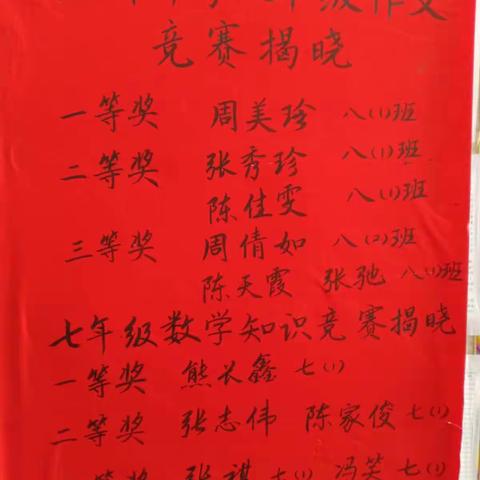 级作文
竞赛揭晓
一等奖 周美珍 八(1)班
二等奖 张秀珍 八(1)班
陈佳雯 八(1)班
三等奖 周倩如 八(2)班
陈天霞 张驰 八(1)班
七年级数学知识竞赛揭晓
一等奖 熊长鑫 七(1)
二等奖 张志伟 陈家俊 七(1)
等奖 张祺 七(1) 冯笑 七(1)